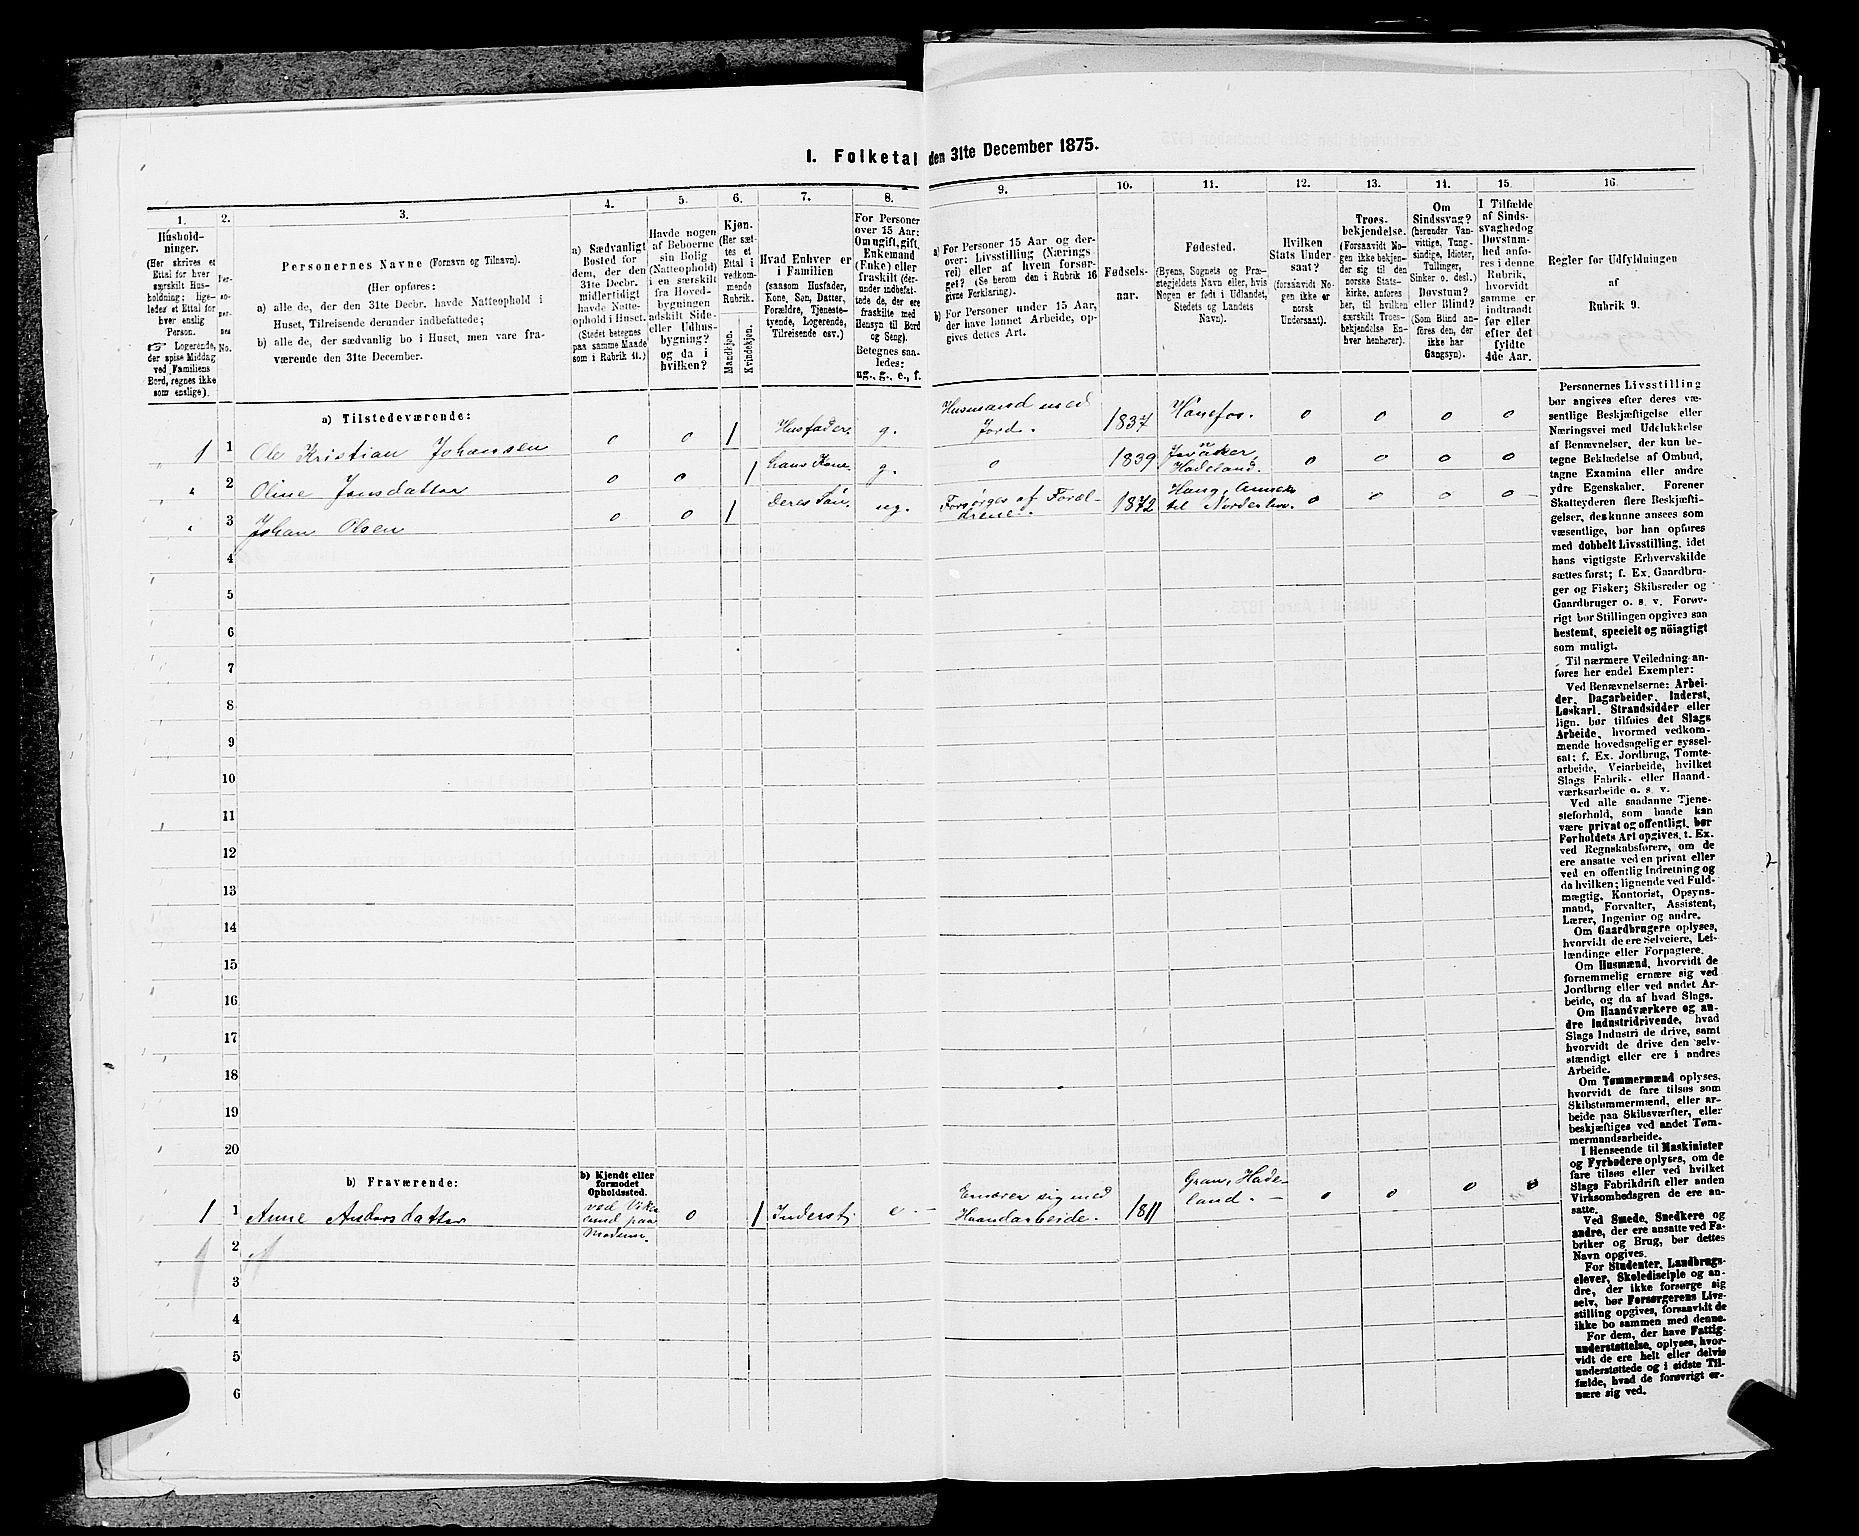 I. Folketal den 31te December 1875.
1.
Husholdninger.
(Her skrives et
Ettal for hver
særskilt Husholdning;
ligeledes et Ettal for
hver enslig
Person.
Logerende,
der spise Middag
ved Familiens
Bord, regnes ikke
som enslige).
2.
Personernes
No.
3.
Personernes Navne (Fornavn og Tilnavn).
(Her opføres:
a) alle de, der den 31te Decbr. havde Natteophold i
Huset, Tilreisende derunder indbefattede;
b) alle de, der sædvanlig bo i Huset, men vare fraværende
den 31te December.
4.
a) Sædvanligt
Bosted for
dem, der den
31te Decbr.
midlertidigt
havde Natteophold
i Huset.
(Stedet betegnes
paa samme Maade
som i Rubrik 11.)
5.
Havde nogen
af Beboerne
sin Bolig
(Natteophold)
i en særskilt
fra Hovedbygningen
adskilt Side-
eller Udhusbygning?
og da i
hvilken?
6.
Kjøn.
(Her sættes
et
Ettal i
vedkommende
Rubrik.
Mandkjøn.
Kvindekjøn.
7.
Hvad Enhver er
i Familien
(saasom Husfader,
Kone, Søn, Datter,
Forældre, Tjenestetyende,
Logerende,
Tilreisende osv.)
8.
For Personer
over 15 Aar:
Om ugift, gift,
Enkemand
(Enke) eller
fraskilt (derunder
indbefattede
de, der ere
fraskilte med
Hensyn til Bord
og Seng).
Betegnes saaledes:
ug., g., e., f.
9.
a) For Personer 15 Aar og derover:
Livsstilling (Næringsvei)
eller af hvem forsørget?
(Se herom den i Rubrik 16
givne Forklaring).
b) For Personer under 15 Aar,
der have lønnet Arbeide, opgives
dettes Art.
10.
Fødselsaar.
11.
Fødested.
(Byens, Sognets og Præstegjeldets
Navn eller, hvis
Nogen er født i Udlandet,
Stedets og Landets
Navn).
12.
Hvilken
Stats Undersaat?
(forsaavidt Nogen
ikke er
norsk
Undersaat).
13.
Troesbekjendelse.
(Forsaavidt Nogen
ikke bekjender
sig til den
norske Statskirke,
anføres
her, til hvilken
særskilt Troesbekjendelse
Enhver
henhører).
14.
Om
Sindssvag?
(herunder Vanvittige,
Tungsindige,
Idioter,
Tullinger,
Sinker o. desl.)
Døvstum?
eller Blind?
(Som Blind anføres
den, der
ikke har
Gangsyn).
15.
I Tilfælde
af Sindssvaghed
og
Døvstumhed
anføres
i denne
Rubrik,
hvorvidt
samme er
indtraadt
før eller
efter det
fyldte
4de Aar.
16.
Regler for Udfyldningen
af
Rubrik 9.
a) Tilstedeværende:
1 1 Ole Kristian Johansen o o 1 Husfader. g. Husmand med Jord. 1837 Hønefos. o o o o
" 2 Oline Jensdatter o o 1 hans Kone g. o 1839 Jevnaker, Hadeland. o o o o
" 3 Johan Olsen o o 1 deres Søn, ug. Forsørges af Forældrene. 1872 til o o o o
4
5
6
7
8
9
10
11
12
13
14
15
16
17
18
19
20
b) Fraværende:
b) Kjendt eller
formodet
Opholdssted.
1 1 Anne Andersdatter ved paa o 1 Inderst, e. Ernærer sig med Haandarbeide. 1811 Gran, Hadeland. o o o o
2
3
4
5
6
Personernes Livsstilling
bør angives efter deres væsentlige
Beskjæftigelse eller
Næringsvei med Udelukkelse
af Benævnelser, der kun betegne
Beklædelse af Ombud,
tagne Examina eller andre
ydre Egenskaber. Forener
Skatteyderen flere Beskjæftigelser,
der kunne ansees som
væsentlige, bør han opføres
med dobbelt Livsstilling, idet
hans vigtigste Erhvervskilde
sættes først; f. Ex. Gaardbruger
og Fisker; Skibsreder og
Gaardbruger o. s. v. Forøvrigt
bør Stillingen opgives saa
bestemt, specielt og nøiagtigt
som muligt.
Til nærmere Veiledning anføres
her endel Exempler:
Ved Benævnelserne: Arbeider,
Dagarbeider, Inderst,
Løskarl, Strandsidder eller
lign. bør tilføies det Slags
Arbeide, hvormed vedkommende
hovedsagelig er sysselsat;
f. Ex. Jordbrug, Tomtearbeide,
Veiarbeide, hvilket
Slags Fabrik- eller Haandværksarbeide
o. s. v.
Ved alle saadanne Tjenesteforhold,
som baade kan
være privat og offentligt, bør
Forholdets Art opgives, t. Ex.
ved Regnskabsførere, om de
ere ansatte ved en privat eller
ved en offentlig Indretning og
da hvilken; lignende ved Fuldmægtig,
Kontorist, Opsynsmand,
Forvalter, Assistent,
Lærer, Ingeniør og andre.
Om Gaardbrugere oplyses,
hvorvidt de ere Selveiere, Leilændinge
eller Forpagtere.
Om Husmænd, hvorvidt de
fornemmelig ernære sig ved
Jordbrug eller ved andet Arbeide,
og da af hvad Slags.
Om Haandværkere og andre
Industridrivende, hvad
Slags Industri de drive, samt
hvorvidt de drive den selvstændigt
eller ere i andres
Arbeide.
Om Tømmermænd oplyses,
hvorvidt de fare tilsøs som
Skibstømmermænd, eller arbeide
paa Skibsværfter, eller
beskjæftiges ved andet Tømmermandsarbeide.
I Henseende til Maskinister
og Fyrbødere oplyses, om de
fare tilsøs eller ved hvilket
Slags Fabrikdrift eller anden
Virksomhedsgren de ere ansatte.
Ved Smede, Snedkere og
andre, der ere ansatte ved Fabriker
og Brug, bør dettes
Navn opgives.
For Studenter, Landbrugselever,
Skoledisciple og andre,
der ikke forsørge sig
selv, bør Forsørgerens Livsstilling
opgives, forsaavidt de
ikke bo sammen med denne.
For dem, der have Fattigunderstøttelse,
oplyses, hvorvidt
de ere helt eller delvis
understøttede og i sidste Tilfælde,
hvad de forøvrigt ernære
sig ved.